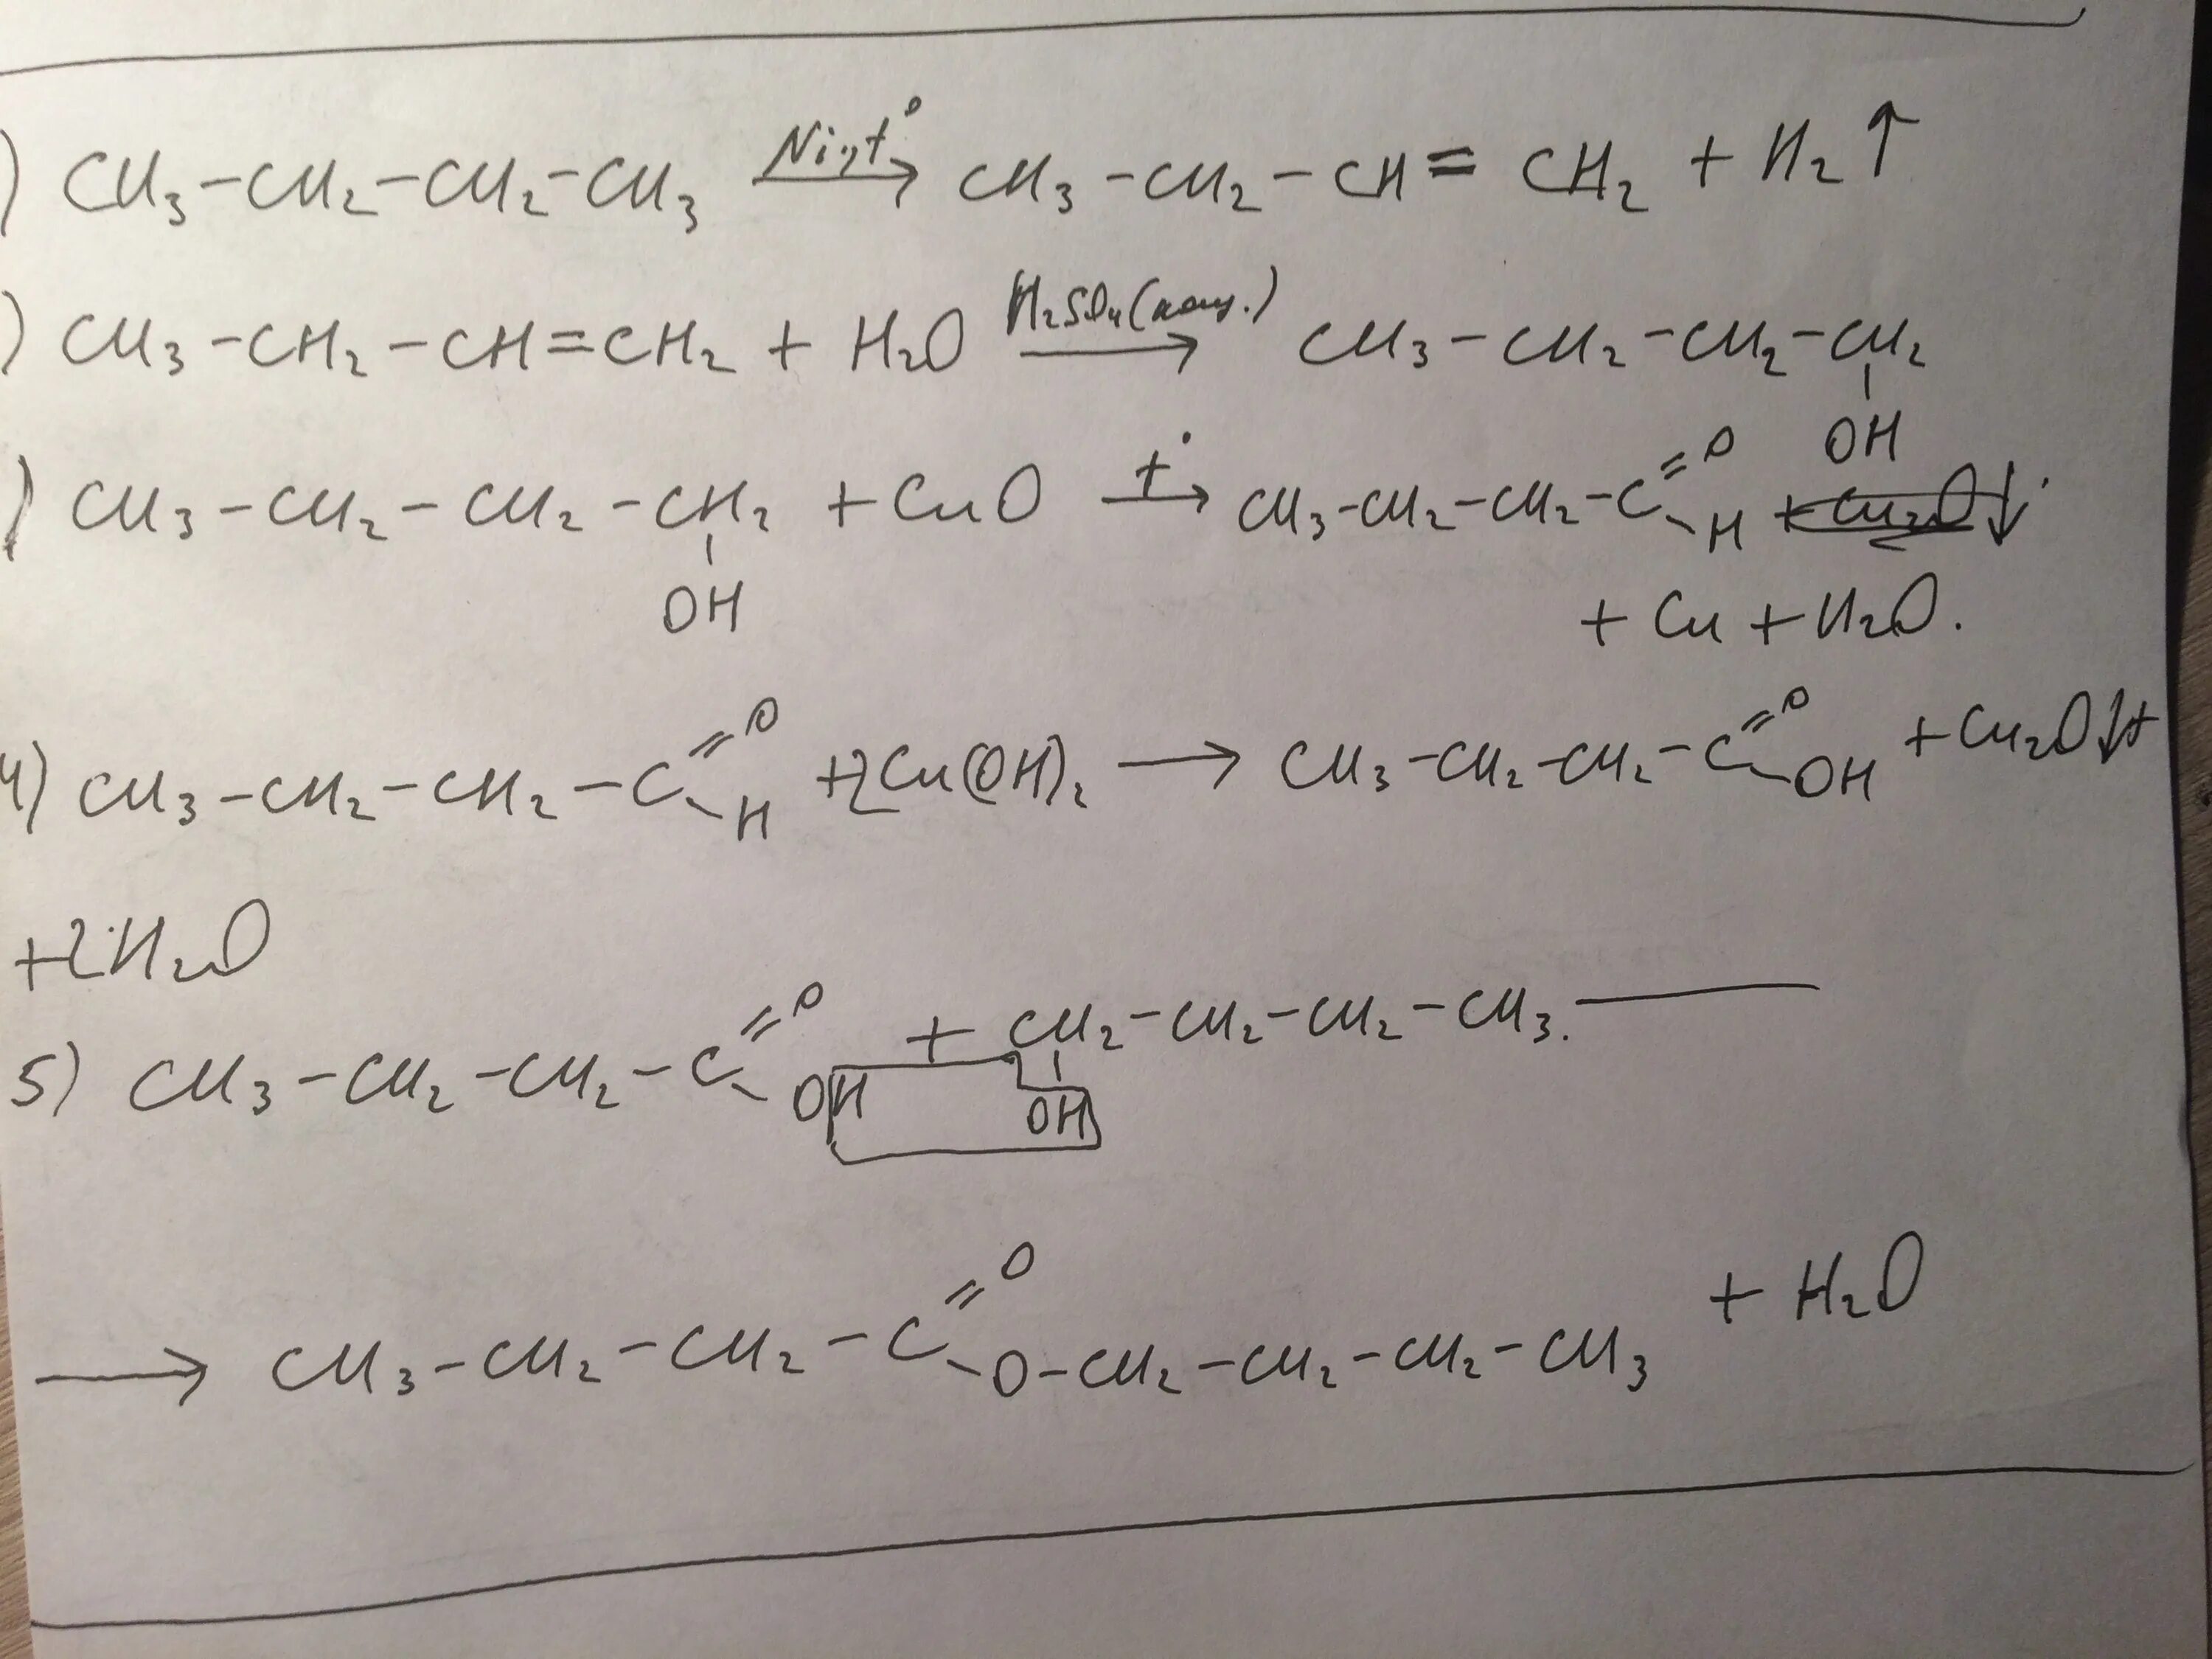 ) CH₃-CH₂-CH₂-CH₃ Ni, t° → CH₃-CH₂-CH=CH₂ + H₂↑
) CH₃-CH₂-CH=CH₂ + H₂O H₂SO₄(конц.) → CH₃-CH₂-CH₂-CH₂
OH
) CH₃-CH₂-CH₂-CH₂ + CuO t° → CH₃-CH₂-CH₂-C=O -H + Cu₂O↓
OH
+ Cu + H₂O.
4) CH₃-CH₂-CH₂-C=O -H +2Cu(OH)₂ → CH₃-CH₂-CH₂-C=O -OH + Cu₂O↓+
+2H₂O
5) CH₃-CH₂-CH₂-C=O -OH + CH₂-CH₂-CH₂-CH₃. —
OH
→ CH₃-CH₂-CH₂-C=O -O-CH₂-CH₂-CH₂-CH₃ + H₂O